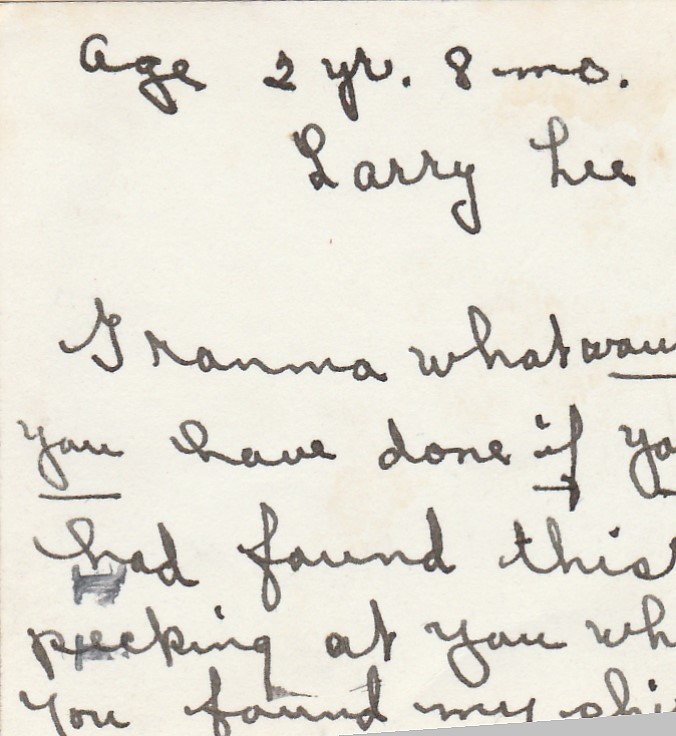 Age 2 yr. 8 mo.
Larry Lee
Granma what
you have done if
had found this
pecking at you
You found my